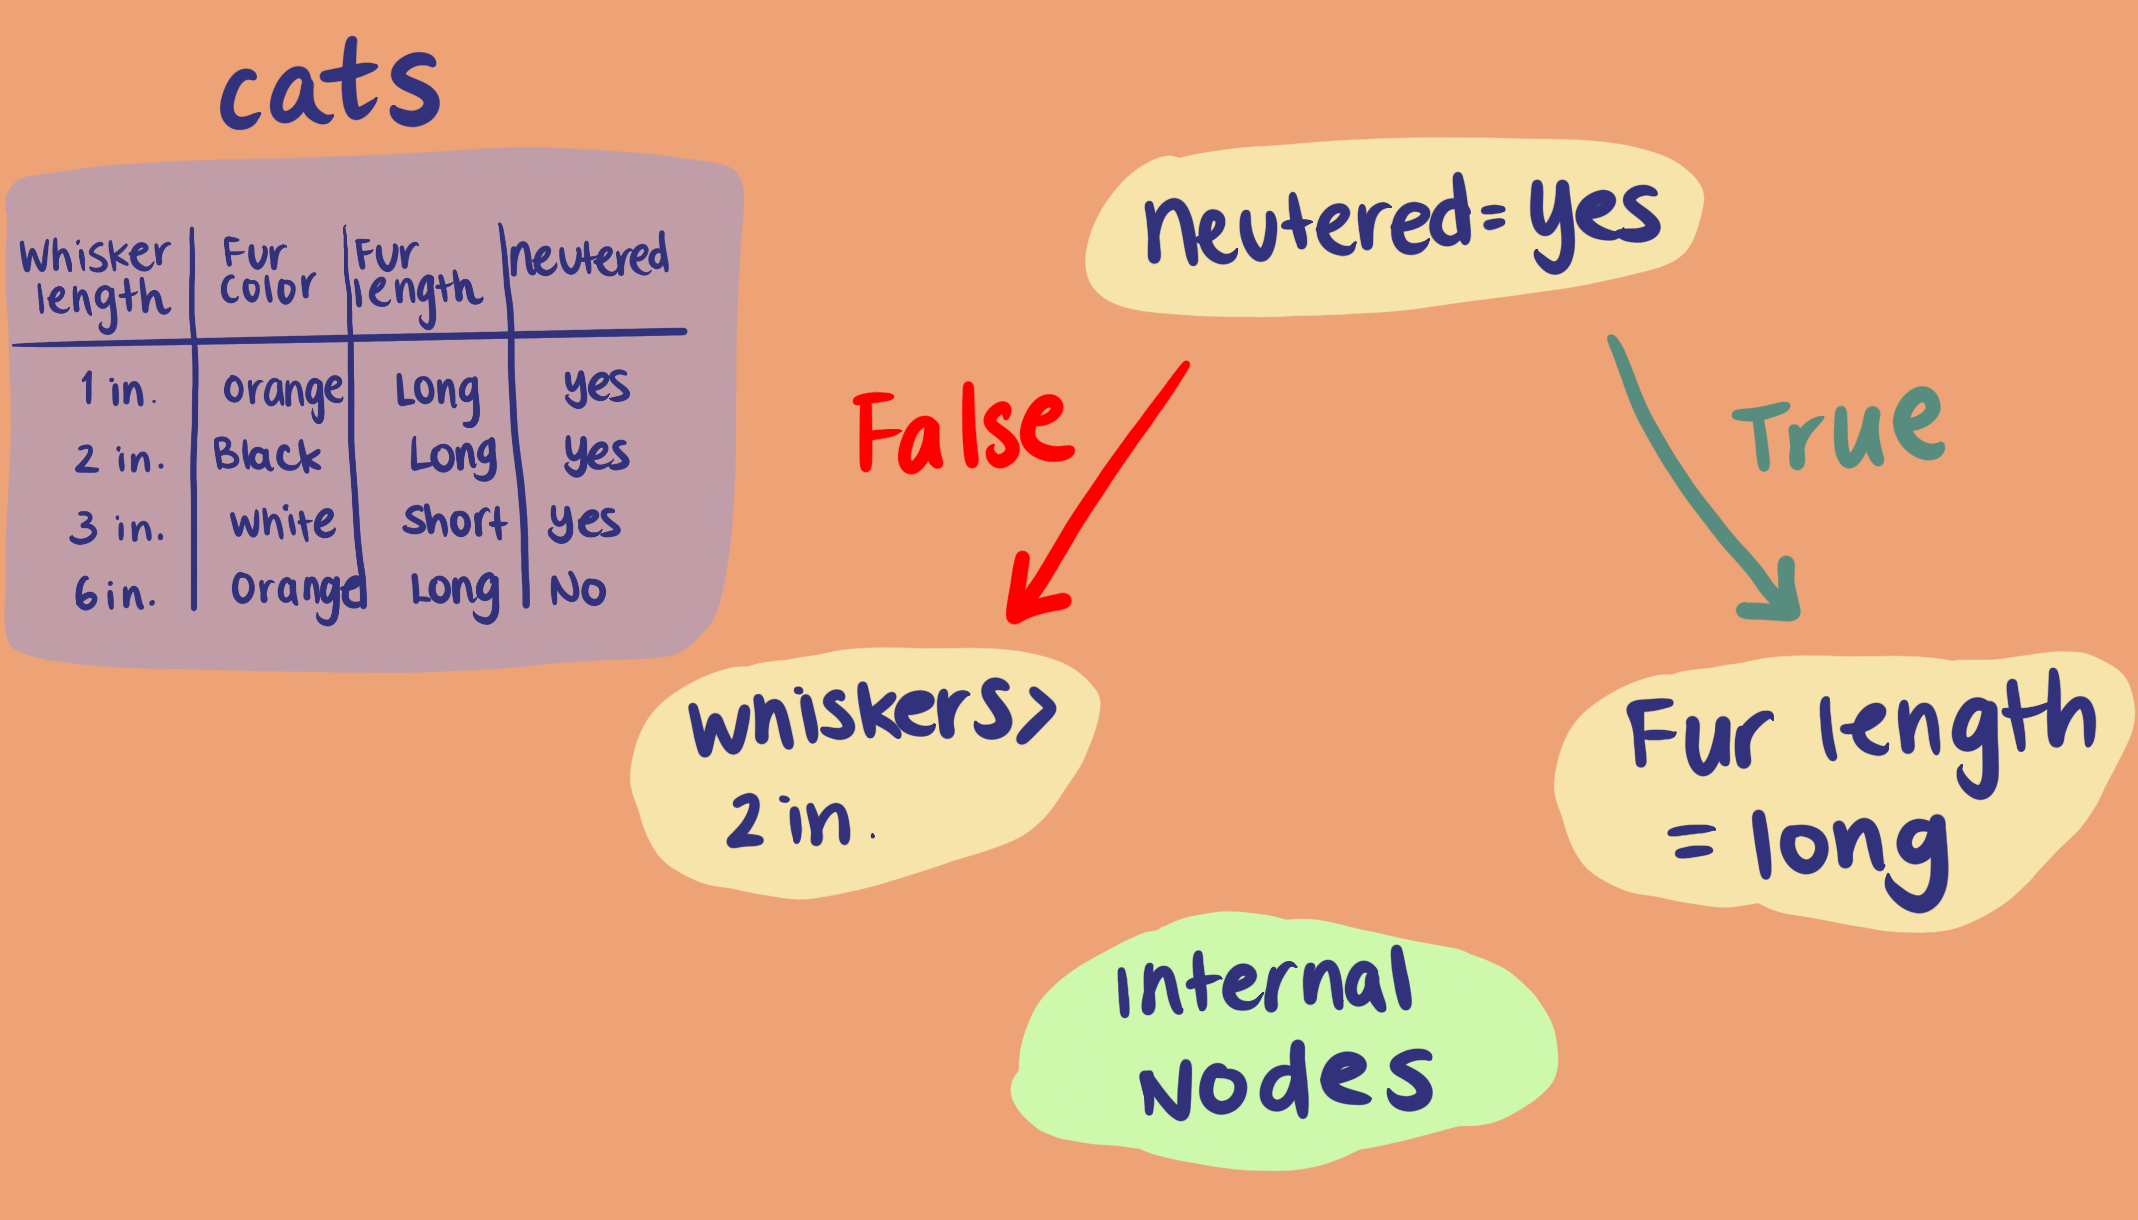 cats
Whisker length | Fur color | Fur length | neutered
1 in. | orange | Long | yes
2 in. | Black | Long | yes
3 in. | white | short | yes
6 in. | orange | Long | No
neutered = yes
False
True
whiskers >
2 in.
Fur length
= long
Internal
Nodes